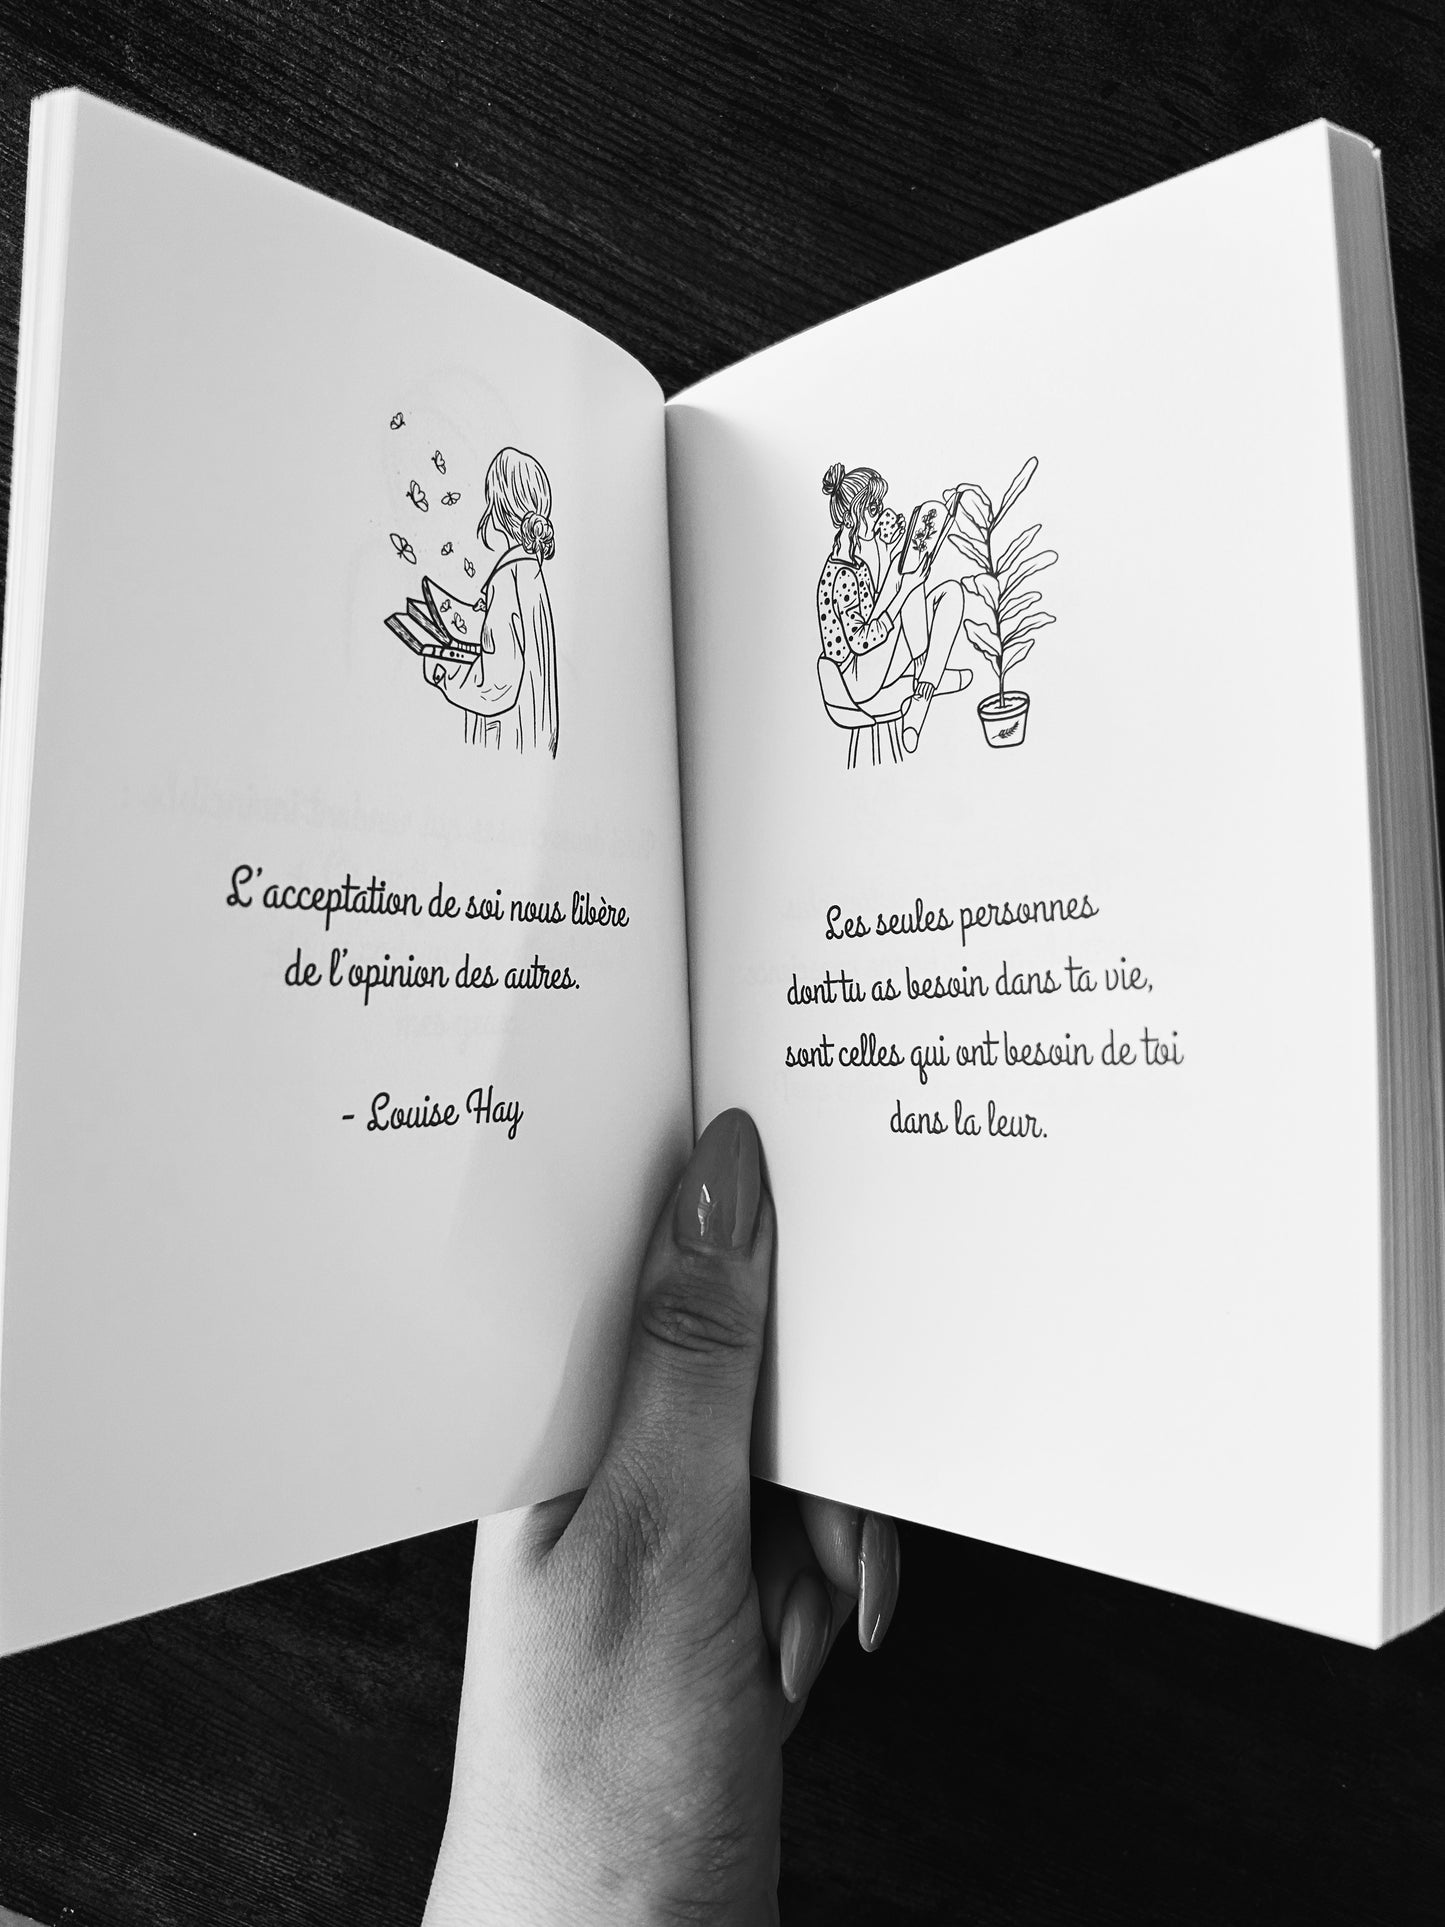 L'acceptation de soi nous libère
de l'opinion des autres.
- Louise Hay
Les seules personnes
dont tu as besoin dans ta vie,
sont celles qui ont besoin de toi
dans la leur.